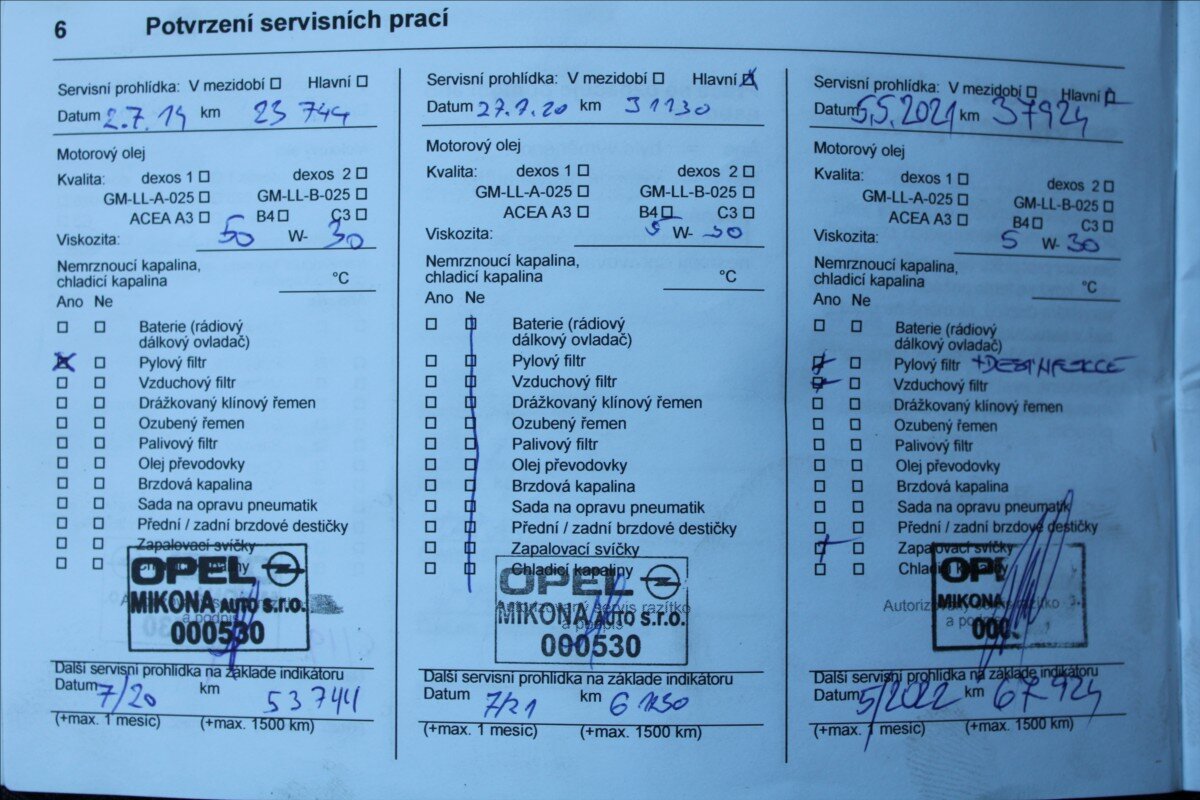 6 Potvrzení servisních prací
Servisní prohlídka: V mezidobí Hlavní
Datum 2.7.19 km 23 744
Motorový olej
Kvalita: dexos 1 dexos 2
GM-LL-A-025 GM-LL-B-025
ACEA A3 B4 C3
Viskozita: 50 W- 30
Nemrznoucí kapalina,
chladicí kapalina °C
Ano Ne
Baterie (rádiový
dálkový ovladač)
Pylový filtr
Vzduchový filtr
Drážkovaný klínový řemen
Ozubený řemen
Palivový filtr
Olej převodovky
Brzdová kapalina
Sada na opravu pneumatik
Přední / zadní brzdové destičky
Zapalovací svíčky
OPEL
MIKONA AUTO s.r.o.
000530
Další servisní prohlídka na základe indikátoru
Datum 7/20 km 53744
(+max. 1 mesíc) (+max. 1500 km)
Servisní prohlídka: V mezidobí Hlavní
Datum 27.7.20 km 31130
Motorový olej
Kvalita: dexos 1 dexos 2
GM-LL-A-025 GM-LL-B-025
ACEA A3 B4 C3
Viskozita: 5 W- 30
Nemrznoucí kapalina,
chladicí kapalina °C
Ano Ne
Baterie (rádiový
dálkový ovladač)
Pylový filtr
Vzduchový filtr
Drážkovaný klínový řemen
Ozubený řemen
Palivový filtr
Olej převodovky
Brzdová kapalina
Sada na opravu pneumatik
Přední / zadní brzdové destičky
Zapalovací svíčky
Chladicí kapaliny
OPEL
Autorizovaný servis razítko
a podpis
MIKONA AUTO s.r.o.
000530
Další servisní prohlídka na základe indikátoru
Datum 7/21 km 61130
(+max. 1 mesíc) (+max. 1500 km)
Servisní prohlídka: V mezidobí Hlavní
Datum 5.5.2021 km 37924
Motorový olej
Kvalita: dexos 1 dexos 2
GM-LL-A-025 GM-LL-B-025
ACEA A3 B4 C3
Viskozita: 5 W- 30
Nemrznoucí kapalina,
chladicí kapalina °C
Ano Ne
Baterie (rádiový
dálkový ovladač)
Pylový filtr + DESINFEKCE
Vzduchový filtr
Drážkovaný klínový řemen
Ozubený řemen
Palivový filtr
Olej převodovky
Brzdová kapalina
Sada na opravu pneumatik
Přední / zadní brzdové destičky
Zapalovací svíčky
Autorizovaný servis razítko
a podpis
MIKONA
Další servisní prohlídka na základe indikátoru
Datum 5/2022 km 67924
(+max. 1 mesíc) (+max. 1500 km)